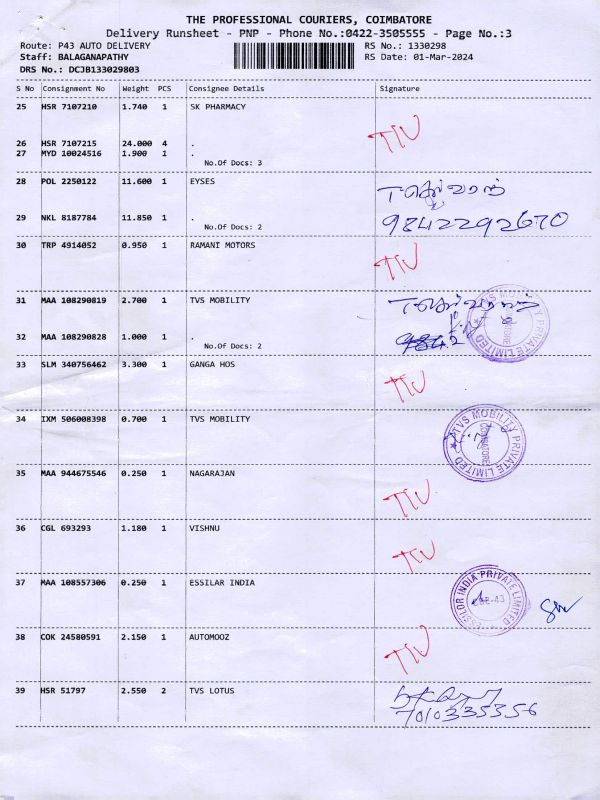 THE PROFESSIONAL COURIERS, COIMBATORE
Delivery Runsheet - PNP - Phone No.:0422-3505555 - Page No.:3
Route: P43 AUTO DELIVERY RS No.: 1330298
Staff: BALAGANAPATHY RS Date: 01-Mar-2024
DRS No.: DCJB133029803
S No Consignment No Weight PCS Consignee Details Signature
25 HSR 7107210 1.740 1 SK PHARMACY
26 HSR 7107215 24.000 4 .
27 MYD 10024516 1.900 1 .
No.Of Docs: 3
28 POL 2250122 11.600 1 EYSES
29 NKL 8187784 11.850 1 . 9842292670
No.Of Docs: 2
30 TRP 4914052 0.950 1 RAMANI MOTORS
31 MAA 108290819 2.700 1 TVS MOBILITY
TVS MOBILITY PRIVATE LIMITED
32 MAA 108290828 1.000 1 .
No.Of Docs: 2
33 SLM 340756462 3.300 1 GANGA HOS
34 IXM 506008398 0.700 1 TVS MOBILITY
TVS MOBILITY PRIVATE LIMITED
COIMBATORE
35 MAA 944675546 0.250 1 NAGARAJAN
36 CGL 693293 1.180 1 VISHNU
37 MAA 108557306 0.250 1 ESSILAR INDIA
ESSILOR INDIA PRIVATE LIMITED
38 COK 24580591 2.150 1 AUTOMOOZ
39 HSR 51797 2.550 2 TVS LOTUS
7010335356